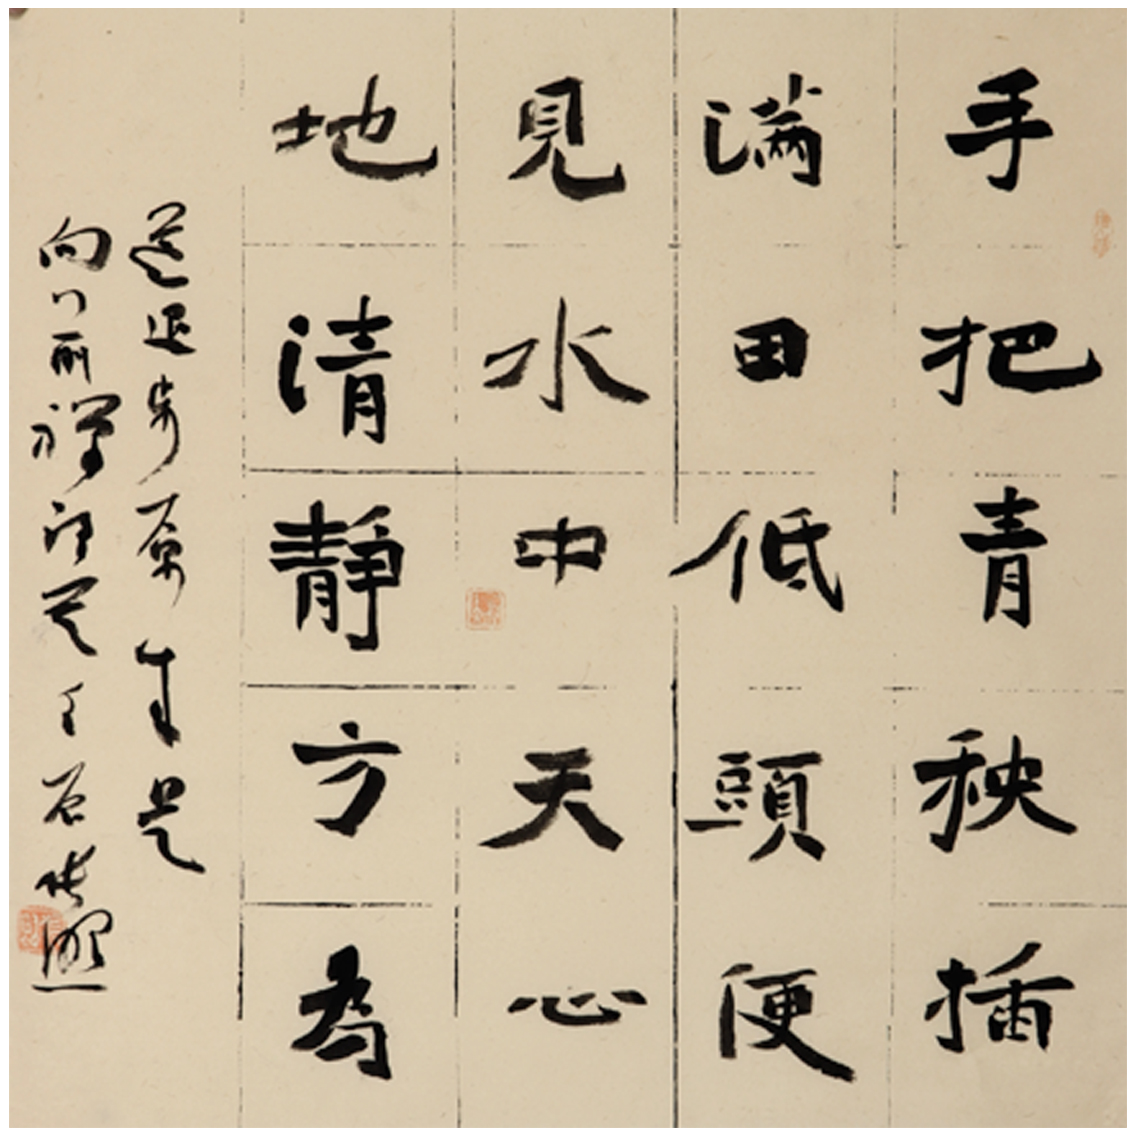 手把青秧插
满田低頭便
見水中天心
地清靜方為
道退步原来是
向前禪